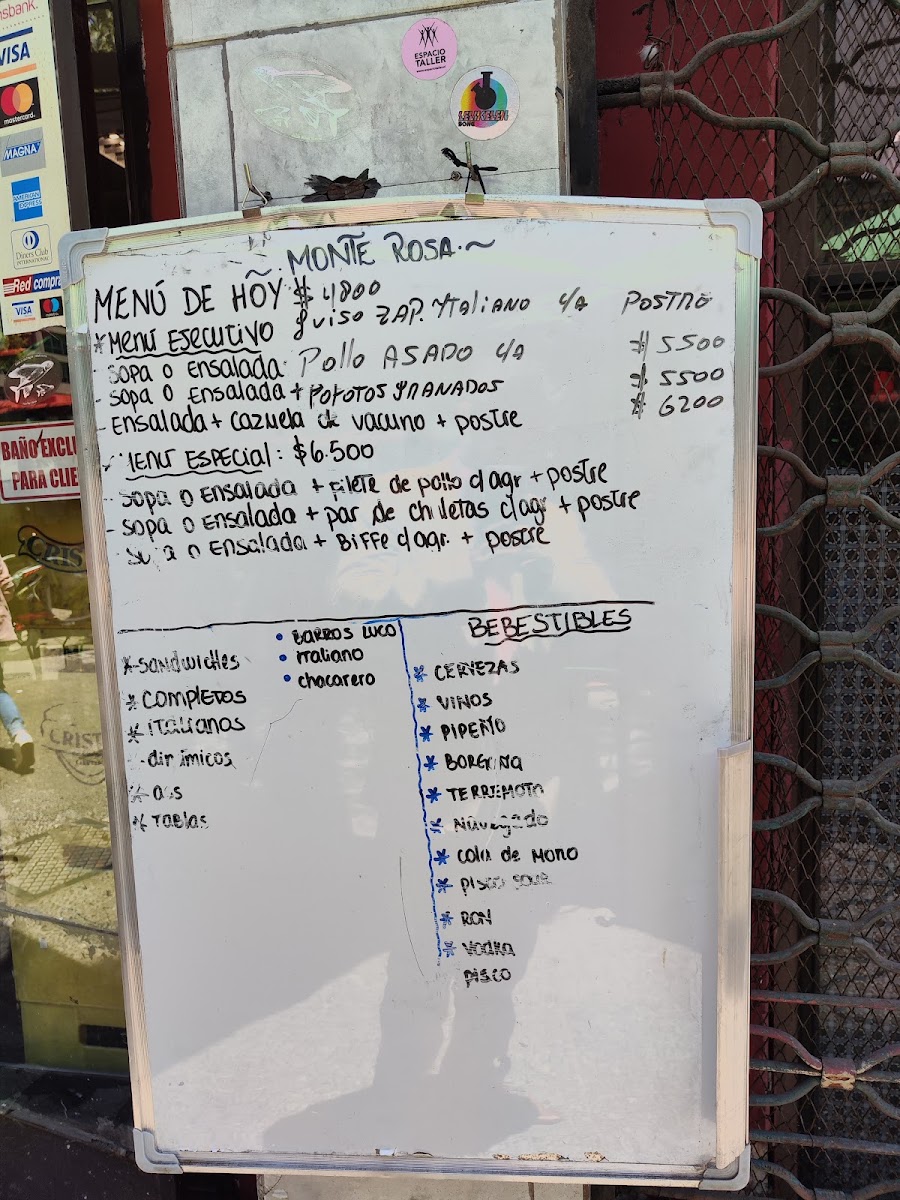 nsbank.
VISA
mastercard.
MAGNA
AMERICAN EXPRESS
Diners Club
INTERNATIONAL
Redcompra
VISA
BAÑO EXCLU
PARA CLIE
ESPACIO
TALLER
MONTE ROSA
MENÚ DE HOY $4800
*MENU EJECUTIVO GUISO ZAP. ITALIANO C/A POSTRE
- SOPA O ENSALADA Pollo ASADO C/A $ 5500
- SOPA O ENSALADA + POROTOS GRANADOS $ 5500
- ENSALADA + CAZUELA de VACUNO + POSTRE $ 6200
MENU ESPECIAL: $6.500
SOPA O ENSALADA + FILETE de pollo c/agr + POSTRE
- SOPA O ENSALADA + PAR de CHULETAS c/agr + POSTRE
- SOPA O ENSALADA + BIFFE c/agr. + POSTRE
*SANDWICHES
• BARROS LUCO
• ITALIANO
• CHACARERO
*COMPLETOS
*ITALIANOS
- dinámicos
*as
*TABLAS
BEBESTIBLES
* CERVEZAS
* VINOS
* PIPEÑO
* BORGOÑA
* TERREMOTO
* NAVEGADO
* COLA de MONO
* PISCO SOUR
* RON
* VODKA
PISCO
CRIST
CRIST